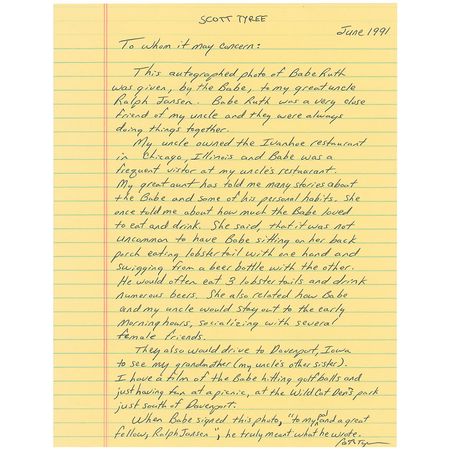 SCOTT TYREE
June 1991
To whom it may concern:
This autographed photo of Babe Ruth
was given, by the Babe, to my great uncle
Ralph Jansen. Babe Ruth was a very close
friend of my uncle and they were always
doing things together.
My uncle owned the Ivanhoe restaurant
in Chicago, Illinois and Babe was a
frequent visitor at my uncle's restaurant.
My great aunt has told me many stories about
the Babe and some of his personal habits. She
once told me about how much the Babe loved
to eat and drink. She said, that it was not
uncommon to have Babe sitting on her back
porch eating lobster tail with one hand and
swigging from a beer bottle with the other.
He would often eat 3 lobster tails and drink
numerous beers. She also related how Babe
and my uncle would stay out to the early
morning hours, socializing with several
female friends.
They also would drive to Davenport, Iowa
to see my grandmother (my uncle's other sister).
I have a film of the Babe hitting golf balls and
just having fun at a picnic, at the Wild Cat Den's park
just south of Davenport.
When Babe signed this photo, "to my pal and a great
fellow, Ralph Jansen", he truly meant what he wrote.